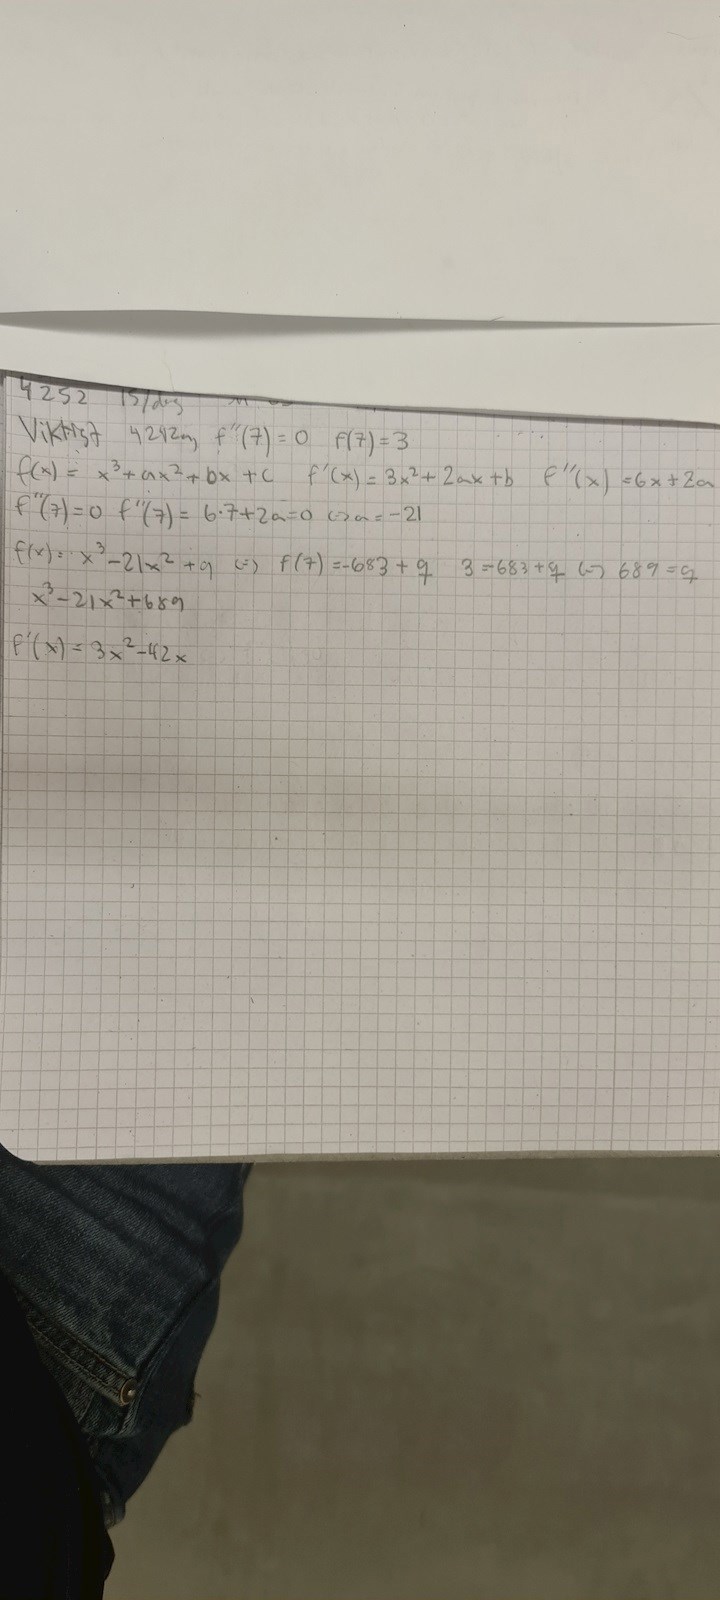 4252 15/dag
Viktigt 4242a, f''(7)=0 f(7)=3
f(x)= x³+ax²+bx+c f'(x)=3x²+2ax+b f''(x)=6x+2a
f''(7)=0 f''(7)= 6·7+2a=0 <=> a=-21
f(x)= x³-21x²+q <=> f(7)=-683+q 3=-683+q <=> 689=q
x³-21x²+689
f'(x)=3x²-42x